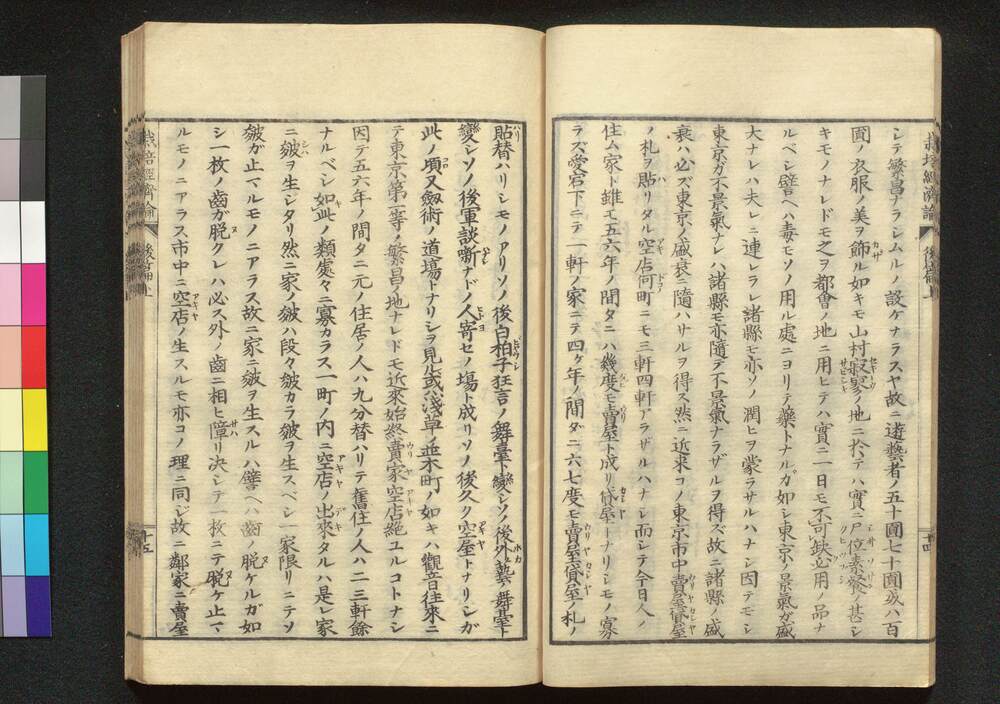 シテ繁昌ナラシムルノ設ケナラスヤ故ニ遊藝者ノ五十圓七十圓或ハ百
圓ノ衣服ノ美ヲ飾ル如キモ山村寂寥ノ地ニ於テハ實ニ尸位素餐ノ甚シ
キモノナレドモ之ヲ都會ノ地ニ用ヒテハ實ニ一日モ不可缺必用ノ品ナ
ルベシ譬ヘハ毒モソノ用ル處ニヨリテ藥トナルガ如シ東京ノ景氣ガ盛
大ナレハ夫レニ連レラレ諸縣モ亦ソノ潤ヒヲ蒙ラサルハナシ因テモシ
東京ガ不景氣ナレハ諸縣モ亦隨テ不景氣ナラザルヲ得ズ故ニ諸縣ノ盛
衰ハ必ズ東京ノ盛衰ニ隨ハサルヲ得ス然ニ近来コノ東京市中賣屋貸屋
ノ札ヲ貼リタル空店何町ニモ三軒四軒アラザルハナシ而シテ今日人ノ
住ム家ト雖モ五六年ノ間タニハ幾度モ賣屋ト成リ貸屋トナリシモノ寡
ラズ愛宕下ニテ一軒ノ家ニテ四ヶ年ノ間ダニ六七度モ賣屋貸屋ノ札ノ
貼替ハリシモノアリソノ後白拍子狂言ノ舞臺ト變シソノ後外藝ノ舞臺ト
變シソノ後軍談噺ナドノ人寄セノ塲ト成リソノ後久ク空屋トナリシガ
此ノ頃又劔術ノ道塲トナリシヲ見ル或ハ淺草ノ並木町ノ如キハ觀音往來ニ
テ東京第一等ノ繁昌ノ地ナレドモ近來始終賣家空店絶ユルコトナシ
因テ五六年ノ間タニ元ノ住居ノ人ハ九分替ハリテ舊住ノ人ハ二三軒餘
ナルベシ如此ノ類處々ニ寡カラス一町ノ内ニ空店ノ出來タルハ是レ家
ニ皴ヲ生シタリ然ニ家ノ皴ハ段々皴カラ皴ヲ生スベシ一家限リニテソ
皴ガ止マルモノニアララス故ニ家ニ皴ヲ生スルハ譬ヘハ齒ノ脱ケルガ如
シ一枚ノ齒ガ脱クレハ必ス外ノ齒ニ相ヒ障リ决シテ一枚ニテ脱ケ止マ
ルモノニアラス市中ニ空店ノ生スルモ亦コノ理ニ同シ故ニ鄰家ニ賣屋
栽培經濟論
後篇上
十五